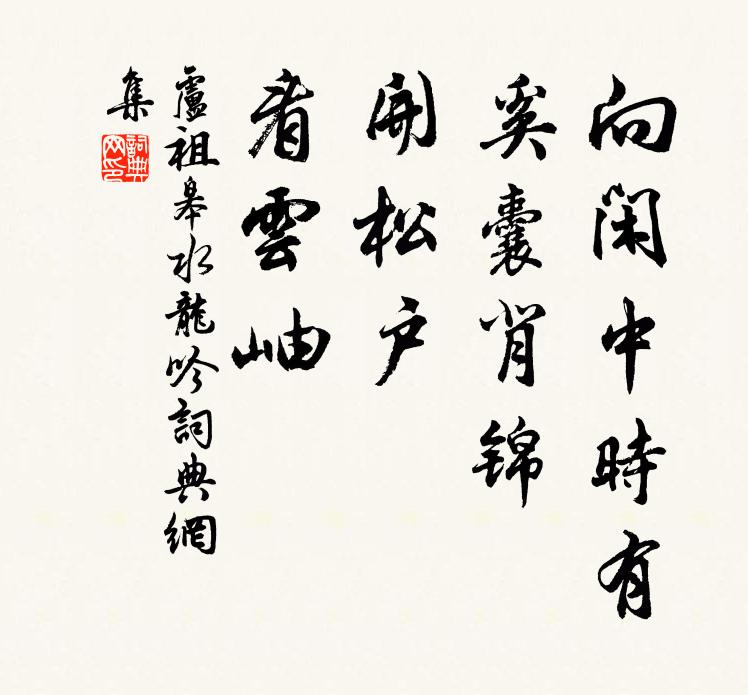 向閑中時有
奚囊背锦
開松户
看雲岫
盧祖皋水龍吟詞典網
集
詞典
网印